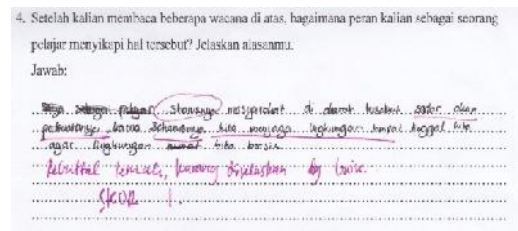 4. Setelah kalian membaca beberapa wacana di atas, bagaimana peran kalian sebagai seorang
pelajar menyikapi hal tersebut? Jelaskan alasanmu.
Jawab:
seharusnya masyarakat di daerah tersebut sadar akan
perbuatannya karna seharusnya kita menjaga lingkungan tempat tinggal kita
agar lingkungan kita bersih
kurang dijelaskan dg baik.
SKOR 1.